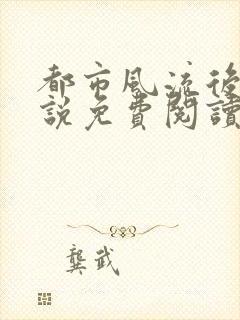 都市風流後
說免費閱讀
龔武